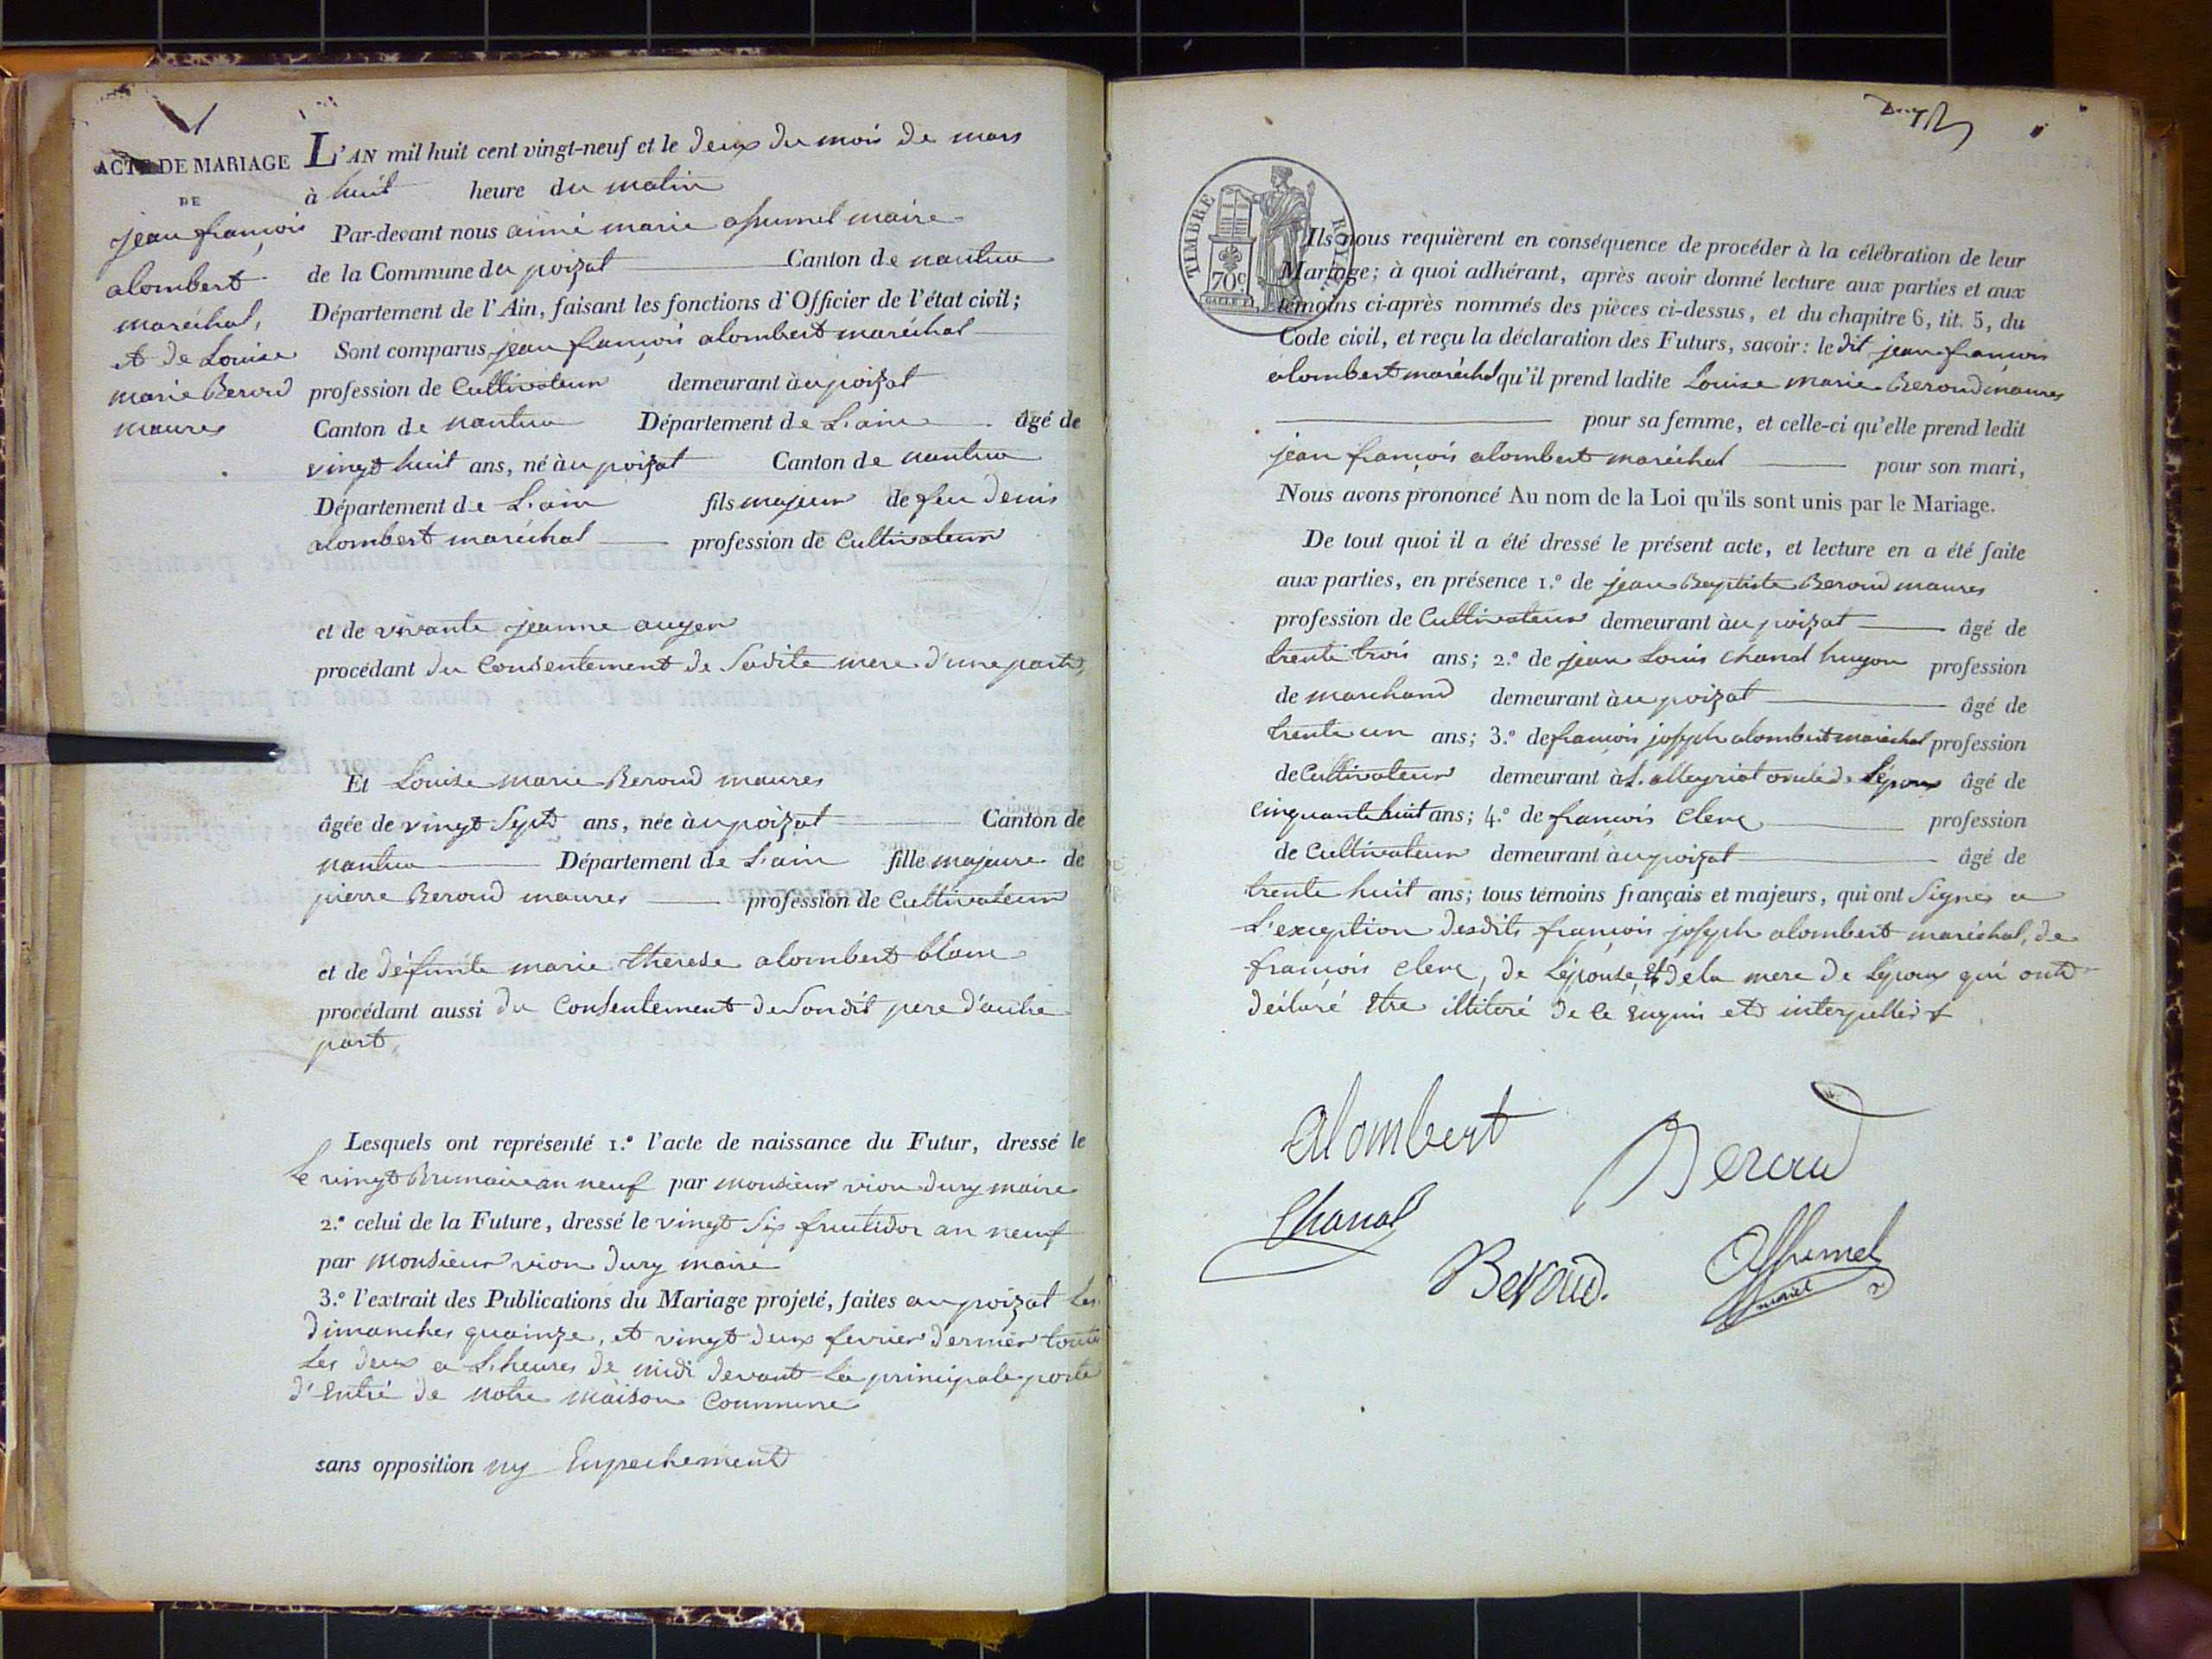 ACTE DE MARIAGE
DE
jean françois
alombert
maréchal,
et de Louise
marie Beroud
maures
L'AN mil huit cent vingt-neuf et le deux du mois de mars
à huit heure du matin
Par-devant nous aimé marie assumel maire
de la Commune du poizat Canton de nantua
Département de l'Ain, faisant les fonctions d'Officier de l'état civil;
Sont comparus jean françois alombert maréchal
profession de Cultivateur demeurant à au poizat
Canton de nantua Département de L'ain âgé de
vingt huit ans, né à au poizat Canton de nantua
Département de L'ain fils majeur de feu denis
alombert maréchal profession de Cultivateur
et de vivante jeanne auger
procédant du Consentement de Sadite mere d'une part,
Et Louise marie Beroud maures
âgée de vingt Sept ans, née à au poizat Canton de
nantua Département de L'ain fille majeure de
pierre Beroud maures profession de Cultivateur
et de défunte marie therese alombert blanc
procédant aussi du Consentement de Sondit pere d'autre
part,
Lesquels ont représenté 1.° l'acte de naissance du Futur, dressé le
Le vingt Brumaire an neuf par monsieur vion dury maire
2.° celui de la Future, dressé le vingt Six fructidor an neuf
par monsieur vion dury maire
3.° l'extrait des Publications du Mariage projeté, faites au poizat Les
dimanches quainze, et vingt deux fevrier dernier toute
Les deux a L'heures de midi devant La principale porte
d'Entré de notre maison Commune
sans opposition ny Enpechement
TIMBRE ROYAL
70c.
Ils nous requièrent en conséquence de procéder à la célébration de leur
Mariage; à quoi adhérant, après avoir donné lecture aux parties et aux
témoins ci-après nommés des pièces ci-dessus, et du chapitre 6, tit. 5, du
Code civil, et reçu la déclaration des Futurs, savoir: le dit jean françois
alombert maréchal qu'il prend ladite Louise marie Beroud maures
pour sa femme, et celle-ci qu'elle prend ledit
jean françois alombert maréchal pour son mari,
Nous avons prononcé Au nom de la Loi qu'ils sont unis par le Mariage.
De tout quoi il a été dressé le présent acte, et lecture en a été faite
aux parties, en présence 1.° de jean Baptiste Beroud maures
profession de Cultivateur demeurant à au poizat âgé de
trente trois ans; 2.° de jean Louis chanal hugon profession
de marchand demeurant à au poizat âgé de
trente un ans; 3.° de françois joseph alombert maréchal profession
de Cultivateur demeurant à L'alleyriat oncle de Lépoux âgé de
cinquante huit ans; 4.° de françois Clerc profession
de Cultivateur demeurant à au poizat âgé de
trente huit ans; tous témoins français et majeurs, qui ont Signes a
L'exception desdits françois joseph alombert maréchal, de
françois clerc, de Lépouse, et de la mere de Lépoux qui ont
déclaré être illiteré de ce enquis et interpellés
alombert
Beroud
Chanal
Beroud.
Assumel
maire